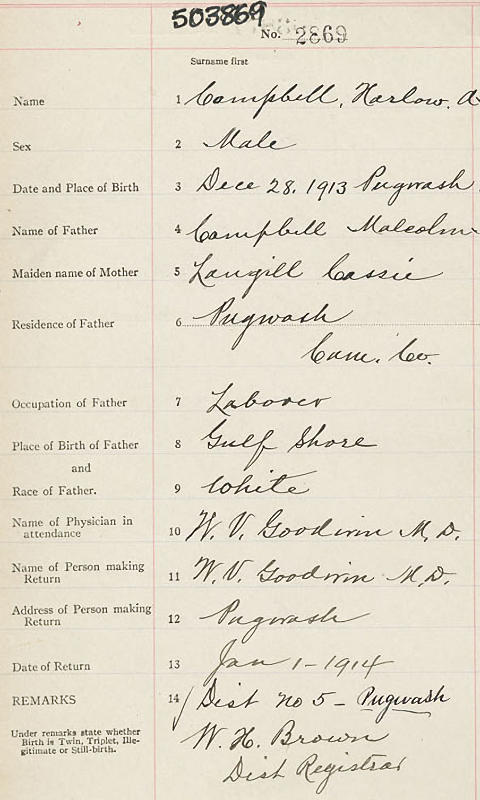 503869
No. 2869
Surname first
Name 1 Campbell, Harlow. A
Sex 2 Male
Date and Place of Birth 3 Dece 28. 1913 Pugwash
Name of Father 4 Campbell Malcolm
Maiden name of Mother 5 Langill Cassie
Residence of Father 6 Pugwash
Cum. Co.
Occupation of Father 7 Laborer
Place of Birth of Father 8 Gulf Shore
and
Race of Father. 9 White
Name of Physician in
attendance 10 W. V. Goodwin M. D.
Name of Person making
Return 11 W. V. Goodwin M. D.
Address of Person making
Return 12 Pugwash
Date of Return 13 Jan 1 - 1914
REMARKS 14 Dist no 5 - Pugwash
Under remarks state whether
Birth is Twin, Triplet, Ille-
gitimate or Still-birth.
W. H. Brown
Dist Registrar